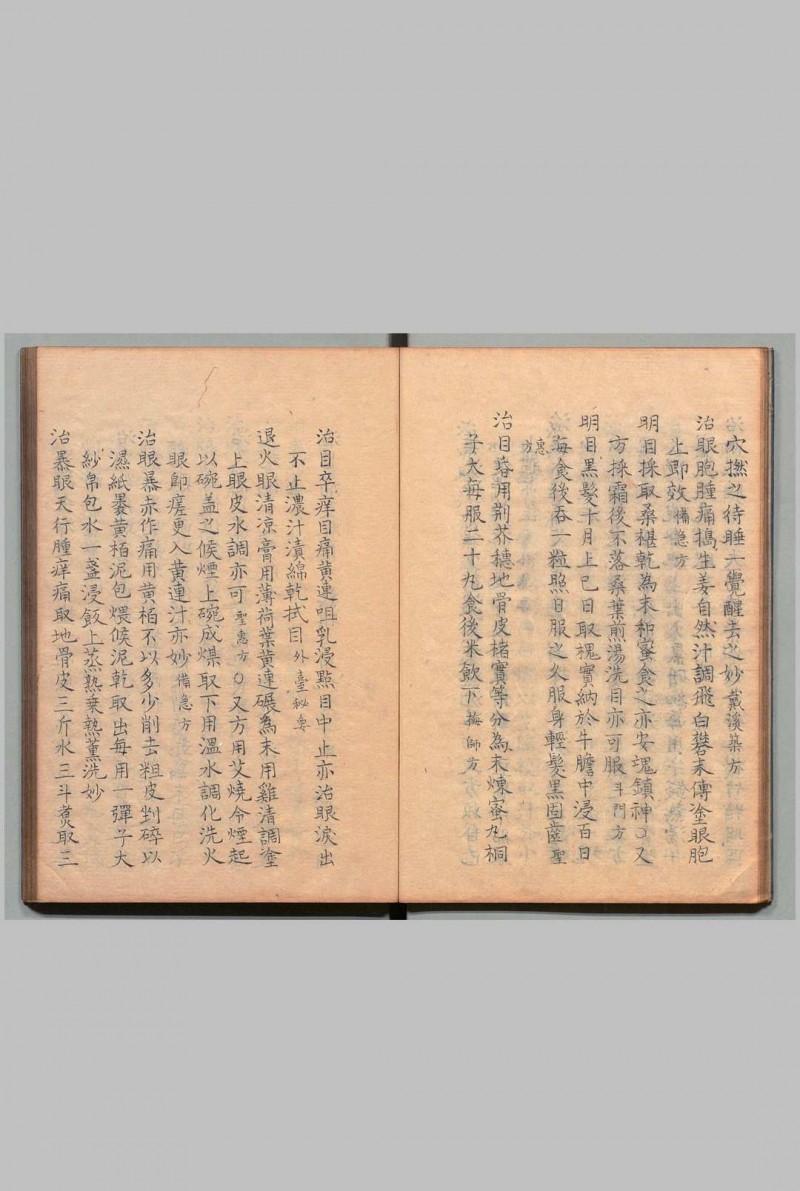 穴撫之待睡一覺醒去之妙戴溪菜方
治眼胞腫痛搗生姜自然汁調飛白礬末傅塗眼胞
上即效備急方
明目採取桑椹乾為末和蜜食之亦安塊鎮神〇又
方採霜後不落桑葉煎湯洗目亦可服斗門方
明目黑髮十月上巳日取槐實納於牛膽中浸百日
每食後吞一粒照日服之久服身輕髮黑固齒聖
惠方
治目昏用荊芥穗地骨皮楮實等分為末煉蜜丸桐
子大每服二十丸食後米飲下梅師方
治目卒痒目痛黄連咀乳浸點目中止亦治眼淚出
不止濃汁漬綿乾拭目外臺秘要
退火眼清凉膏用薄荷葉黄連碾為末用雞清調塗
上眼皮水調亦可聖惠方〇又方用艾燒令煙起
以碗盖之候煙上碗成煤取下用溫水調化洗火
眼即瘥更入黄連汁亦妙備急方
治眼暴赤作痛用黄栢不以多少削去粗皮剉碎以
濕紙裹黄栢泥包煨候泥乾取出每用一彈子大
紗帛包水一盞浸飯上蒸熟乗熱薰洗妙
治暴眼天行腫痒痛取地骨皮三斤水三斗煑取三